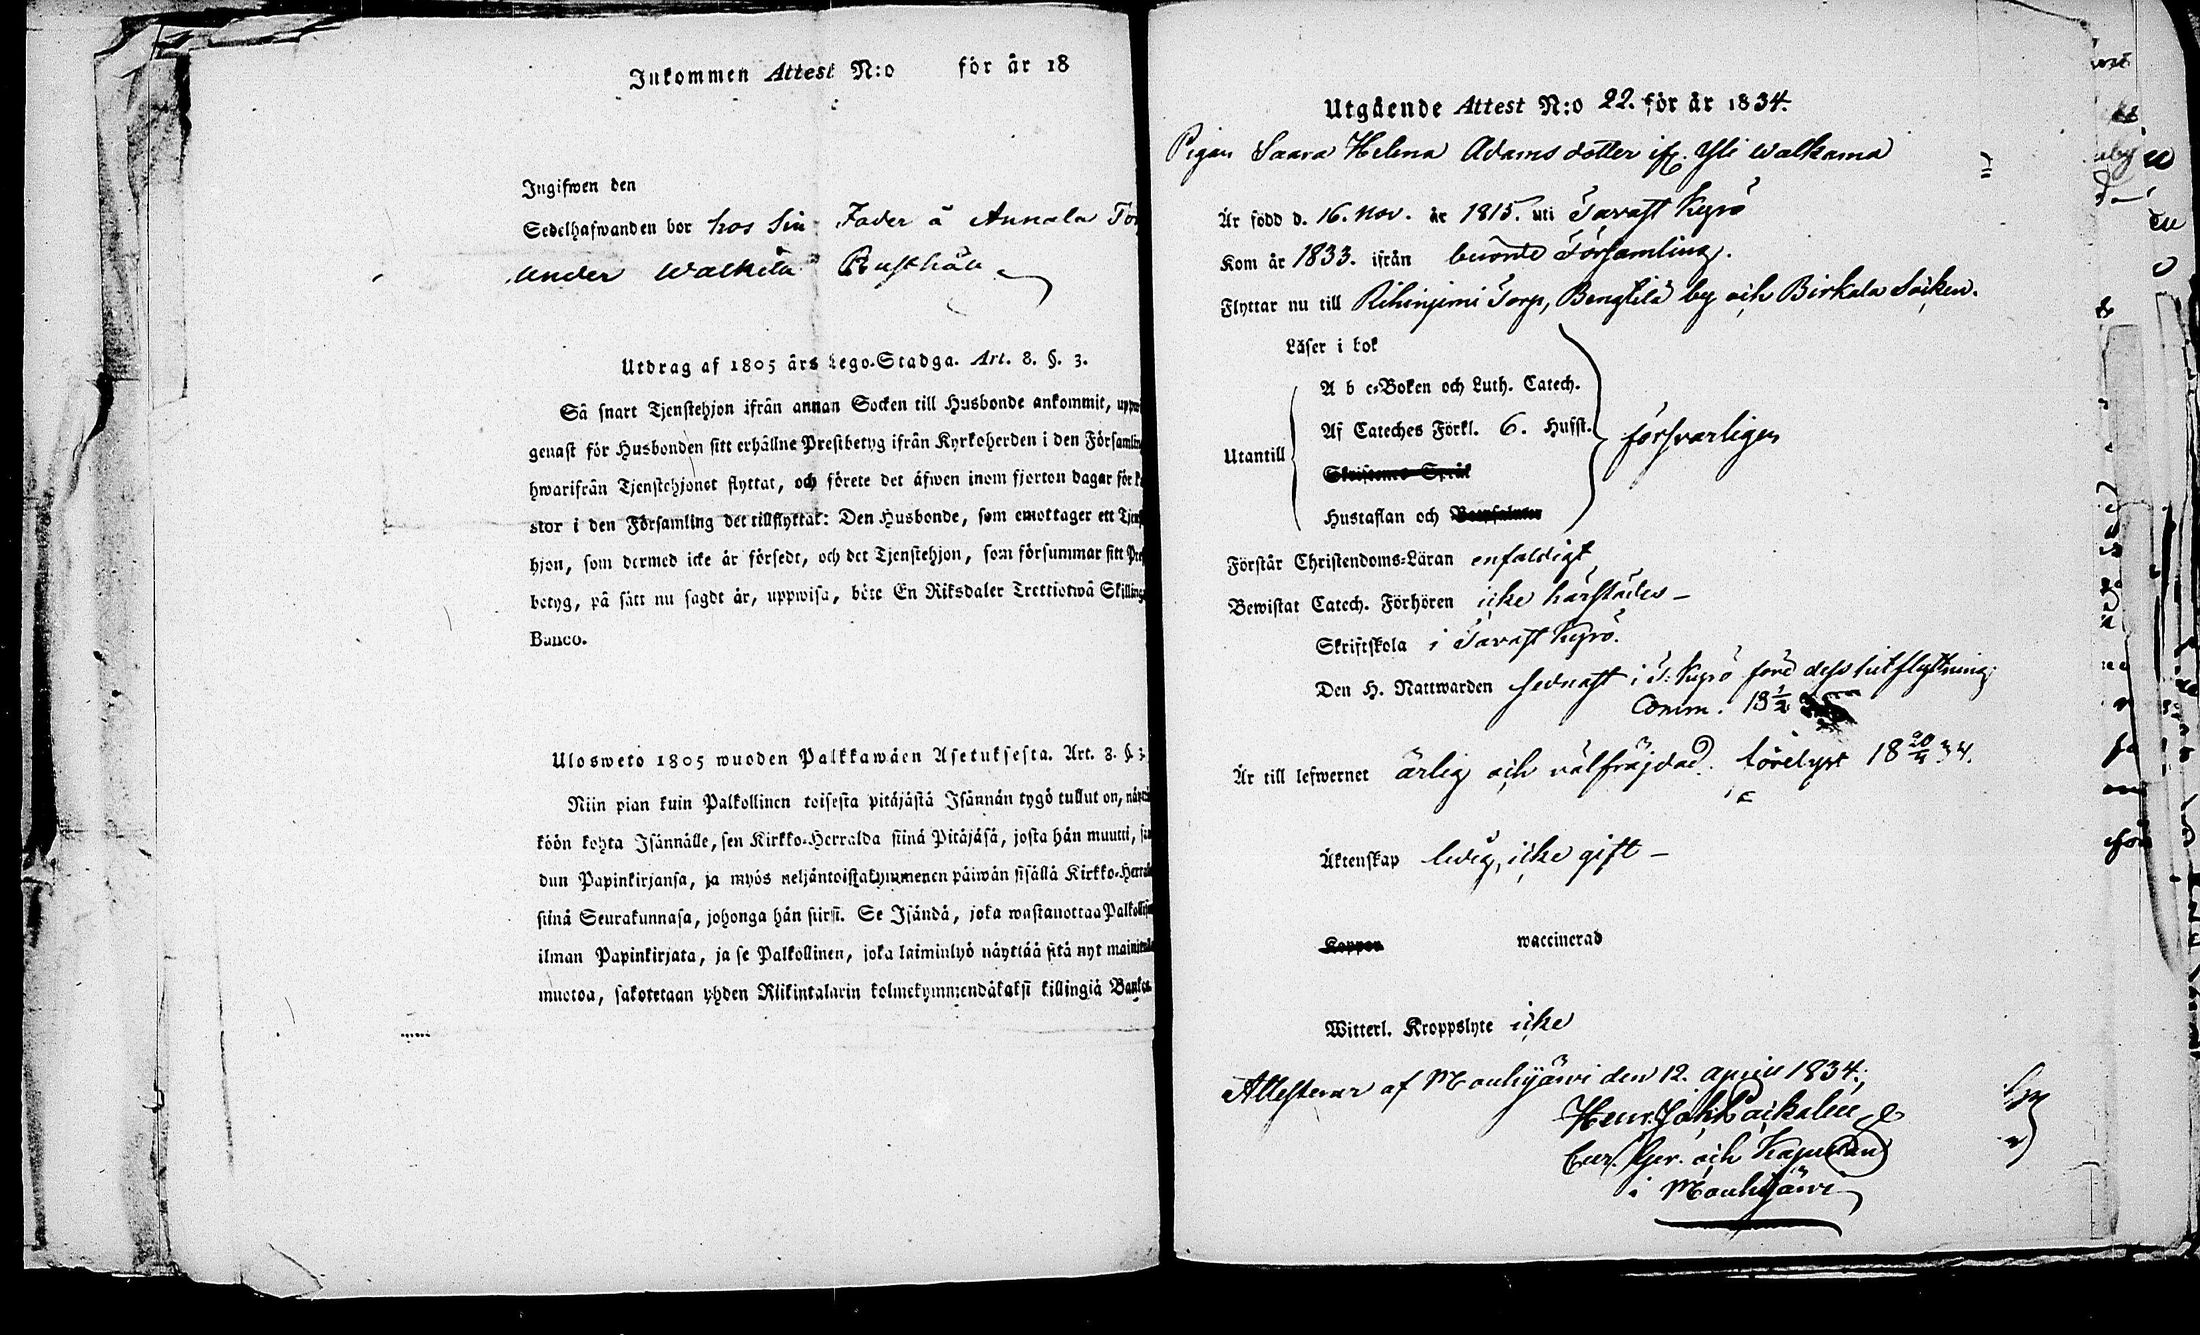 Inkommen Attest N:o för år 18
Ingifwen den
Sedelhafwanden bor hos Sin Fader å Annala
under Walkila Rusthåll
Utdrag af 1805 års Lego-Stadga. Art. 8. §. 3.
Så snart Tjenstehjon ifrån annan Socken till Husbonde ankommit,
genast för Husbonden sitt erhållne Prestbetyg ifrån Kyrkoherden i den
hwarifrån Tjenstehjonet flyttat, och förete det äfwen inom fjorton dagar för
stor i den Församling det tillflyttat: Den Husbonde, som emottager ett
hjon, som dermed icke är försedt, och det Tjenstehjon, som försummar sitt
betyg, på sätt nu sagdt är, uppwisa, böte En Riksdaler Trettiotwå
Banco.
Ulosweto 1805 wuoden Palkkawäen Asetuksesta. Art. 8. §. 3.
Niin pian kuin Palkollinen toisesta pitäjästä Isännän tygö tullut on,
köön kohta Isännälle, sen Kirkko-Herralda siinä Pitäjäsä, josta hän muutti,
dun Papinkirjansa, ja myös neljäntoistakymmenen päiwän sisällä
siinä Seurakunnasa, johonga hän siirsi. Se Isändä, joka wastanottaa
ilman Papinkirjata, ja se Palkollinen, joka laiminlyö näyttää sitä nyt
muotoa, sakotetaan yhden Riikintalarin kolmekymmendäkaksi killingiä
Utgående Attest N:o 22. för år 1834.
Pigan Saara Helena Adamsdotter ifr. Yli Walkama
Är född d. 16. Nov. år 1815. uti Tavast Kyrö
Kom år 1833. ifrån berörde Församling.
Flyttar nu till Riihiniemi Torp, Bengtilä by och Birkala Socken.
Läser i bok
A b c-Boken och Luth. Catech.
Af Cateches Förkl. 6. Husst.
Utantill försvarligen
Skriftenes Språk
Hustaflan och
Förstår Christendoms-Läran enfaldigt
Bewistat Catech. Förhören icke härstädes –
Skriftskola i Tavast Kyrö.
Den H. Nattwarden sednast i T: Kyrö före dess utflyttning;
Comm.
Är till lefwernet ärlig och välfräjdad.
Äktenskap ledig, icke gift –
Koppor waccinerad
Witterl. Kroppslyte icke
Attesterar af Mouhijärwi den 12. April 1834.
Henr. Joh.
och Kapellan
i Mouhijärwi